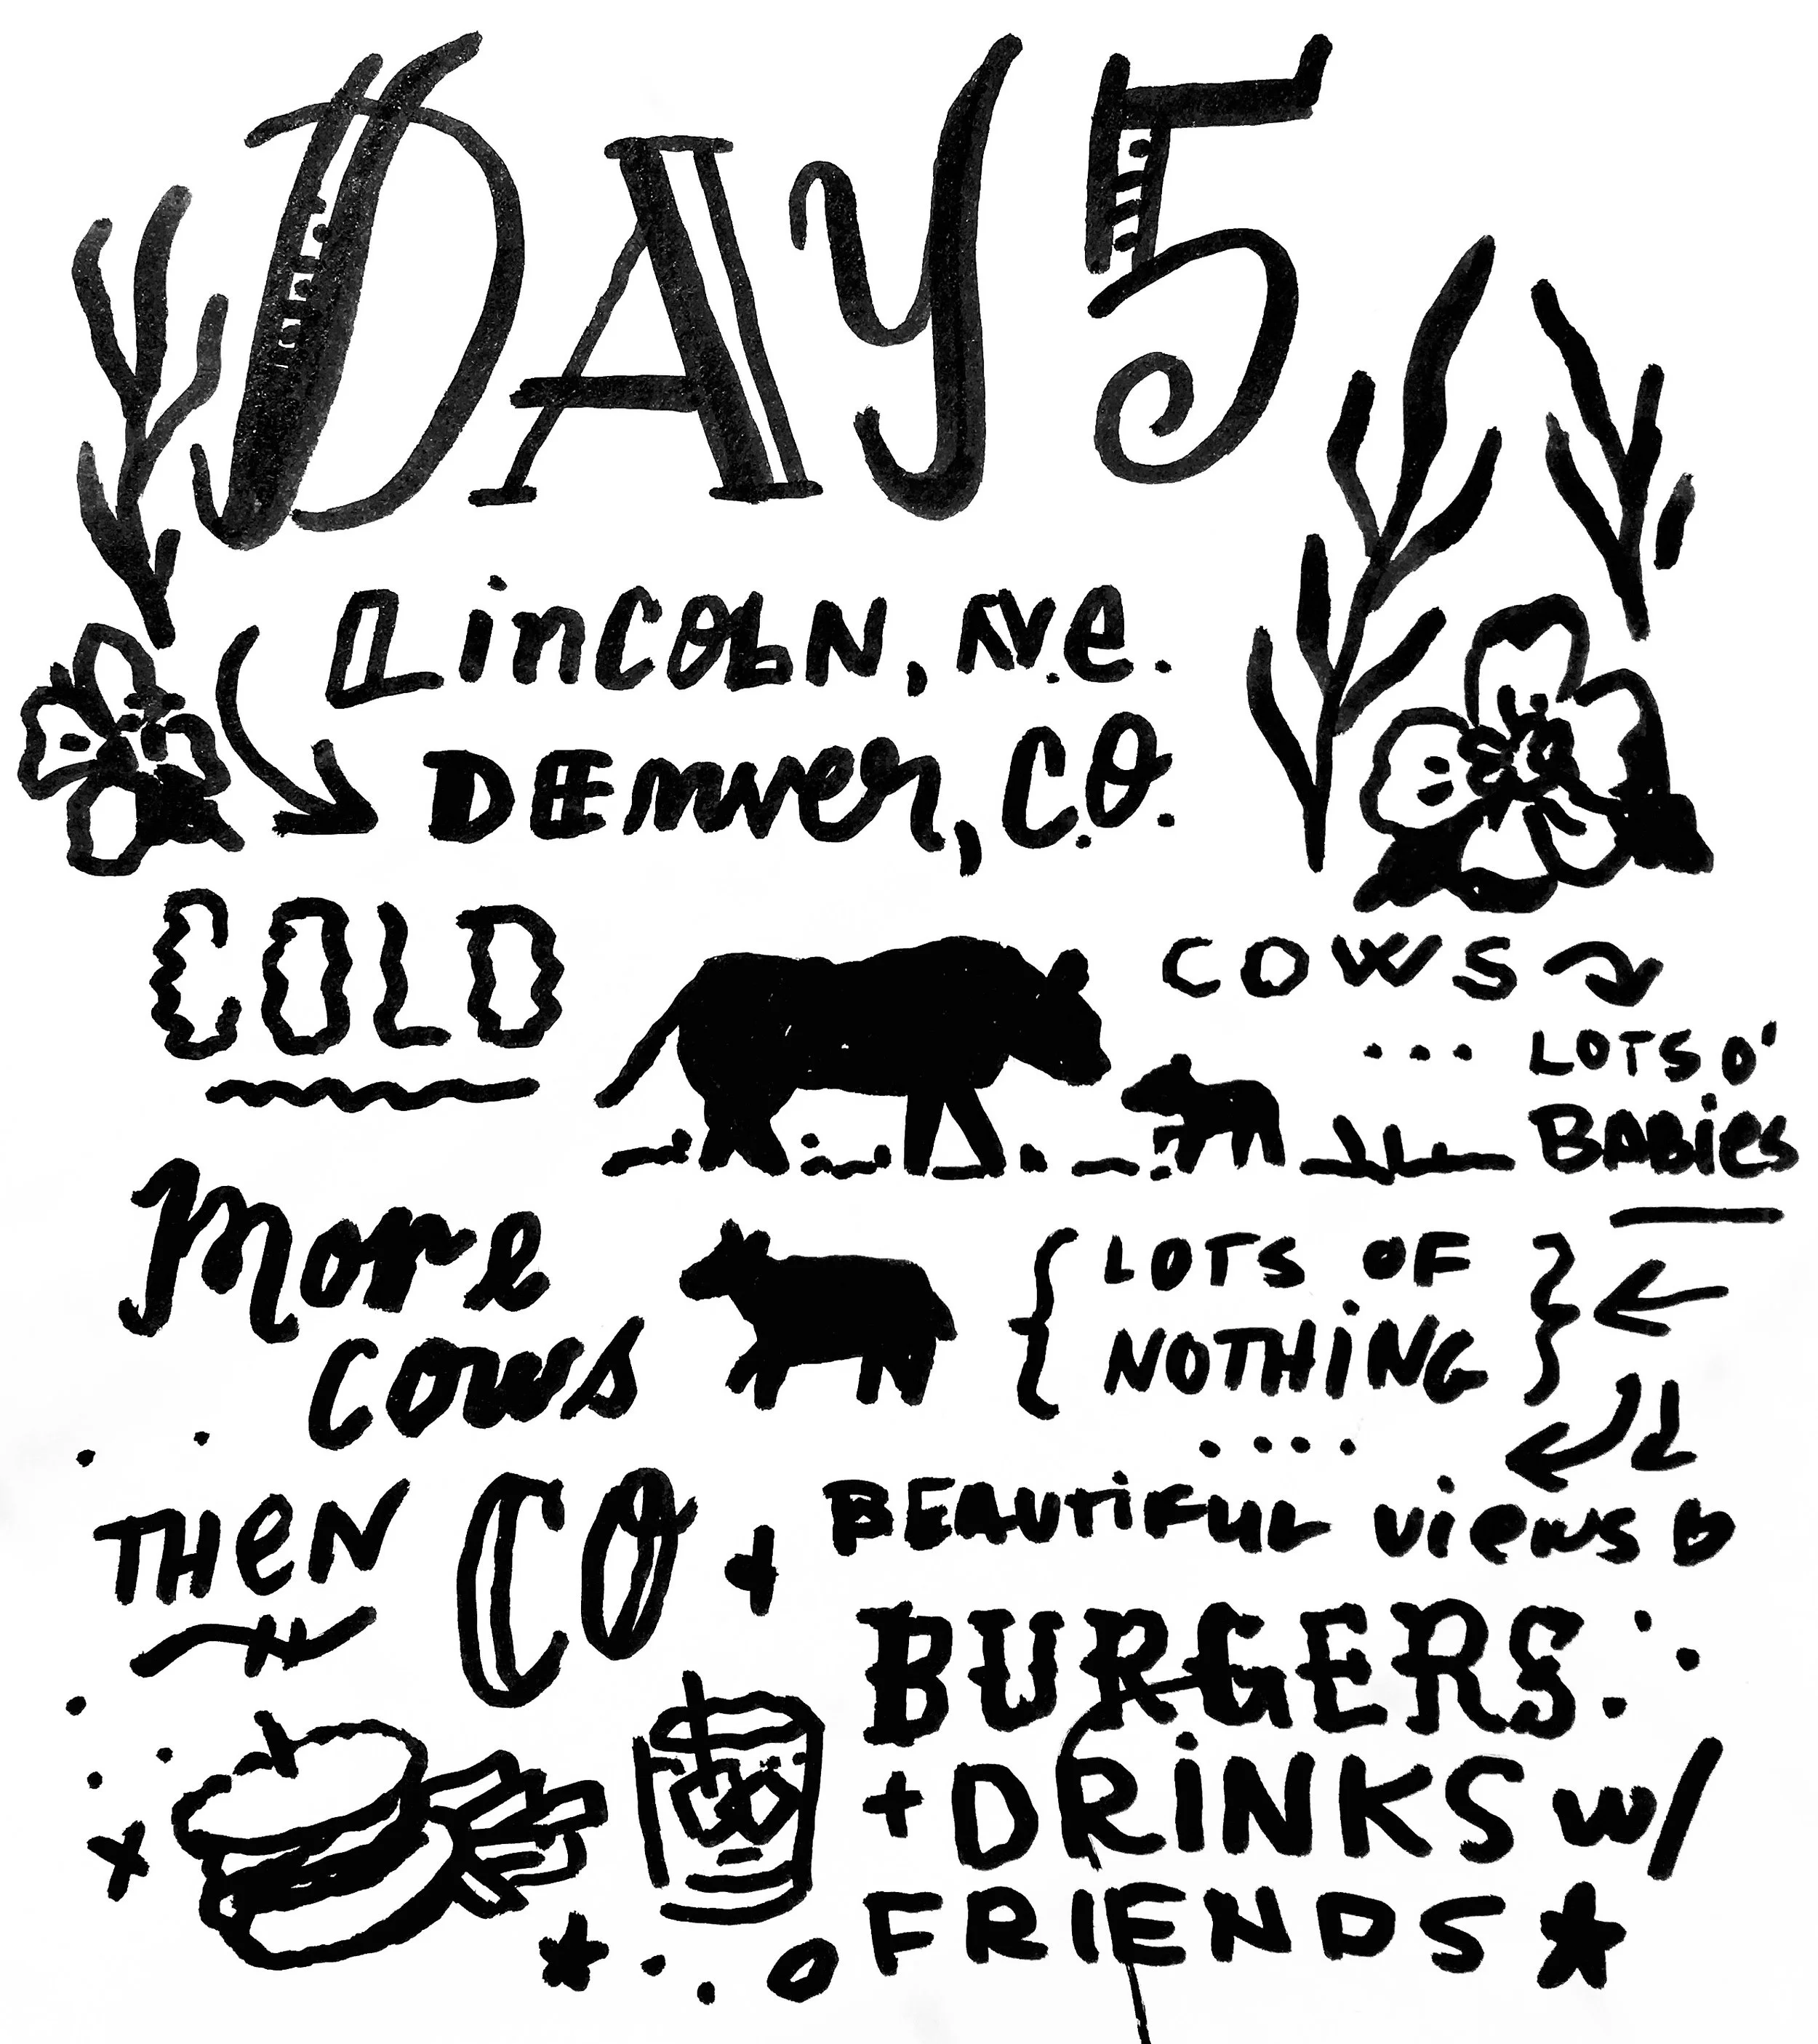 DAY 5
LinCOLN, N.e.
DENver, C.O.
COLD
COWS
... LOTS O'
BABies
More
cows
{ LOTS OF
NOTHiNG }
....
THeN CO + BEAUTiFUL Views
BURGERS
+ DRiNKS w/
FRIENDS